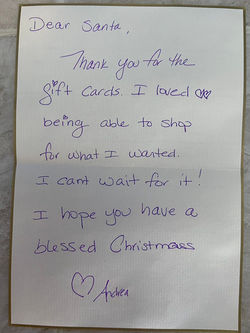 Dear Santa,
Thank you for the
gift cards. I loved
being able to shop
for what I wanted.
I cant wait for it!
I hope you have a
blessed Christmass
Andrea